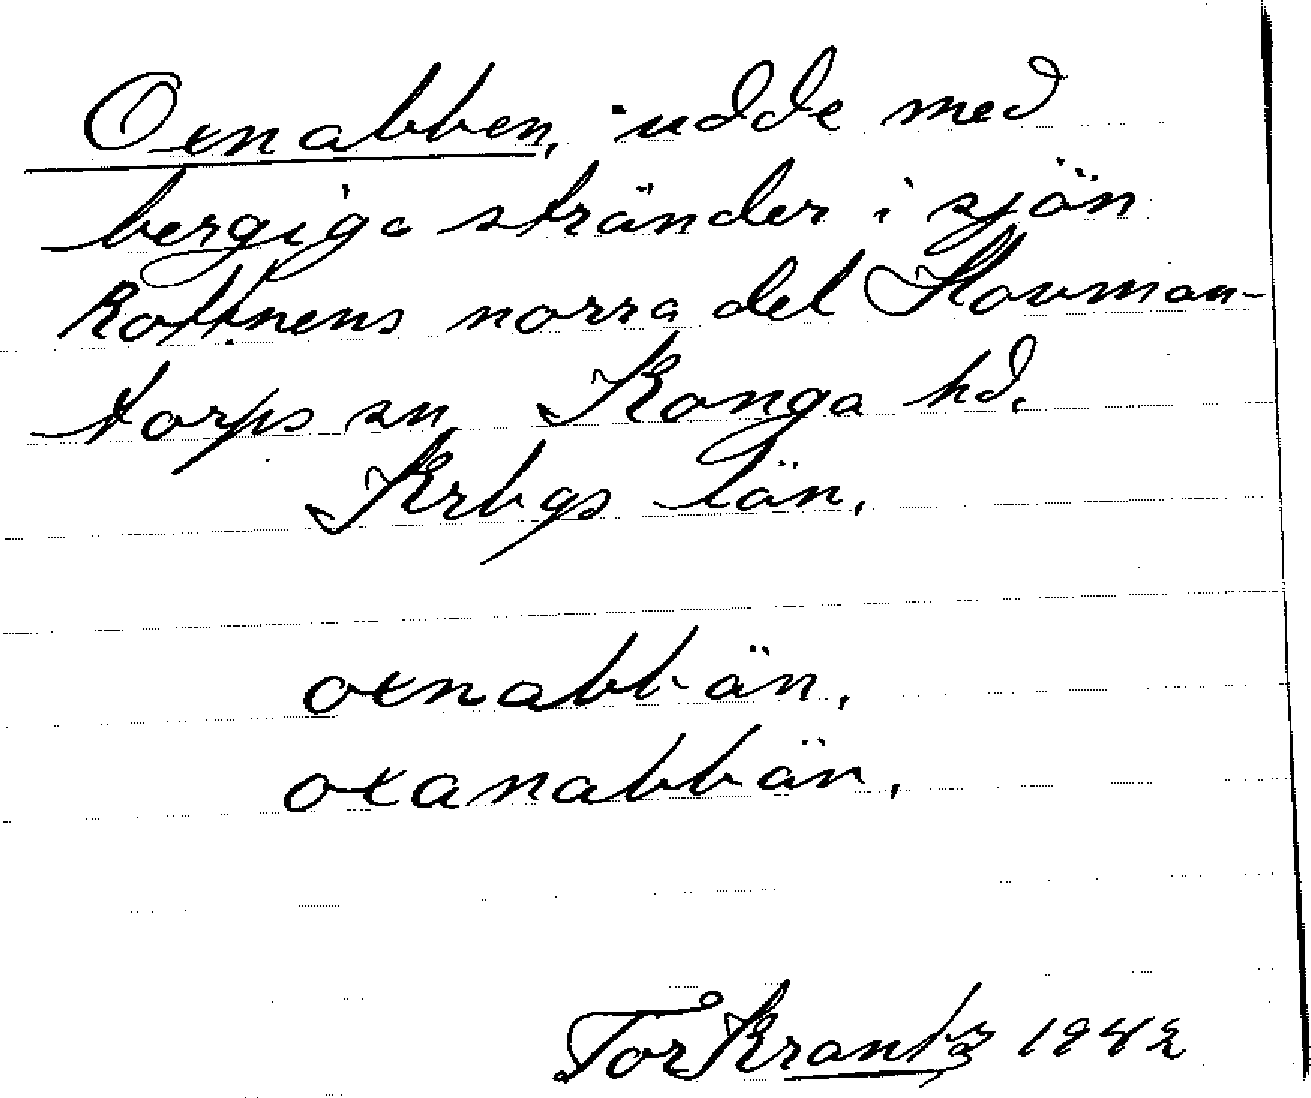 Oxnabben, udde med
bergiga stränder i sjön
Rottnens norra del Hovman-
torps sn Konga hd.
Krbgs län.
oxnabbän.
oxanabbän.
Tor Krantz 1942